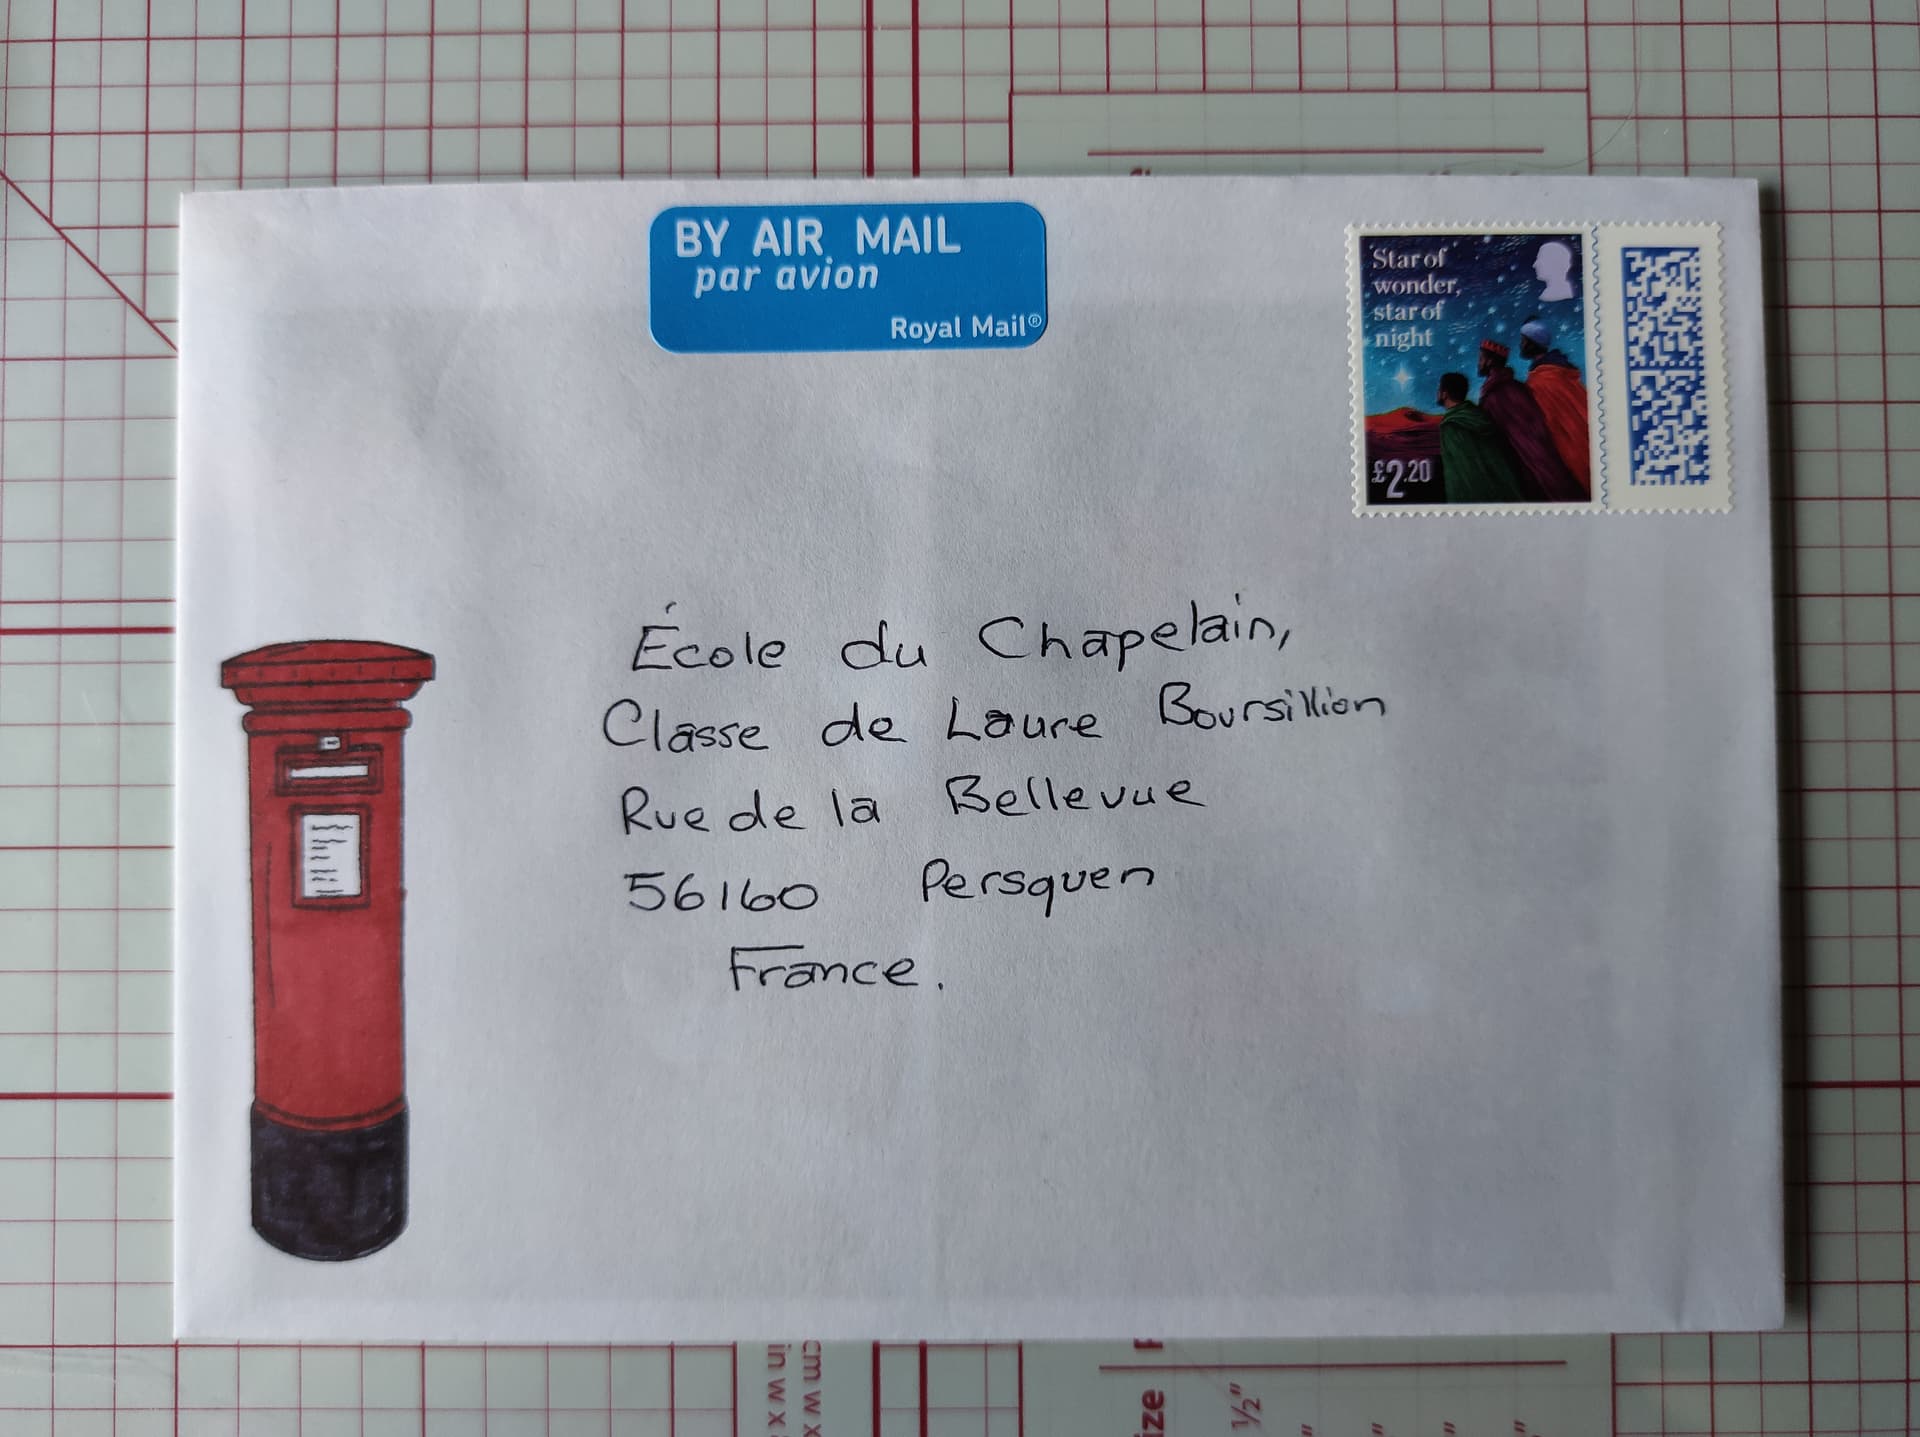 BY AIR MAIL
par avion
Royal Mail®
Star of
wonder,
star of
night
£2.20
École du Chapelain,
Classe de Laure Boursillion
Rue de la Bellevue
56160 Persquen
France.
in w x
cm w x
ize
½"